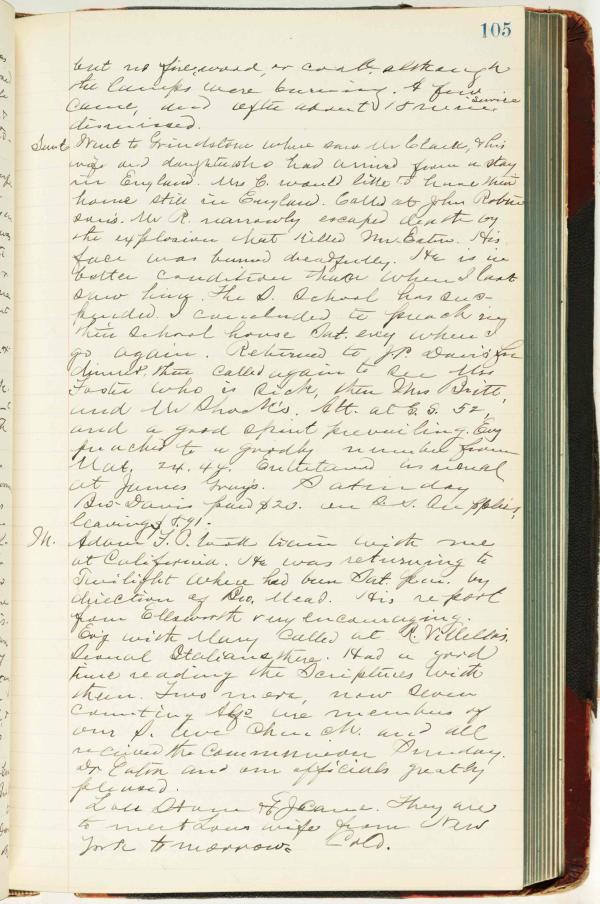 105
but no fire, wood, or coal, although
the lamps were burning. A few
came, and after about 15 min. service
dismissed.
Went to Grindstone where saw Mr Clack, & his
wife and daughter who had arrived from a stay
in England. Mrs C. would like to have their
home still in England. Called at John Robin
son's. Mr R. narrowly escaped death by
the explosion that killed Mr Eaton. His
face was burned dreadfully. He is in
better condition than when I last
saw him. The S. School has sus-
pended. I concluded to preach in
their school house Sat. evg when I
go again. Returned to J.P. Davis' for
dinner, then called again to see Mrs
Foster who is sick, then Mrs Britt,
and Mr Shook's. Att. at S. S. 52,
and a good spirit prevailing. Evg
preached to a goodly number from
Mat. 24.44. Entertained as usual
at James Grays. Saturday
Bro. Davis paid $20. on S.S. Supplies,
leaving $5.91.
M. Adam F. O. took train with me
at California. He was returning to
Twilight where had been Sat. p.m. by
direction of Bro. Mead. His report
from Ellsworth very encouraging.
Evg with Mary called at R. V.
Several Italians there. Had a good
time reading the Scriptures with
them. Two more, now seven
counting are members of
our S. Ave Church. and all
received the Communion Sunday.
Dr Eaton and our officials greatly
pleased.
Lou Stone & Jeane. They are
to meet Lou's wife from New
York tomorrow. Cold.